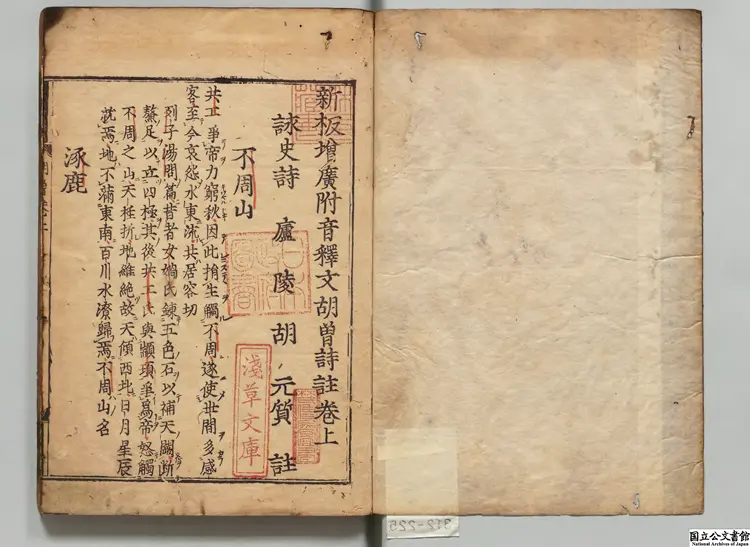 新板增廣附音釋文胡曾詩註卷上
詠史詩 廬陵 胡 元質 註
不周山
共工爭帝力窮秋因此捐生觸不周遂使世間多感
客至今哀怨水東流共居容切
列子湯問篇昔者女媧氏鍊五色石以補天闕斷
鼇足以立四極其後共工氏與顓頊爭爲帝怒觸
不周之山天柱折地維絶故天傾西北日月星辰
就焉地不滿東南百川水潦歸焉不周山名
涿鹿
淺草文庫
312-225
国立公文書館
National Archives of Japan